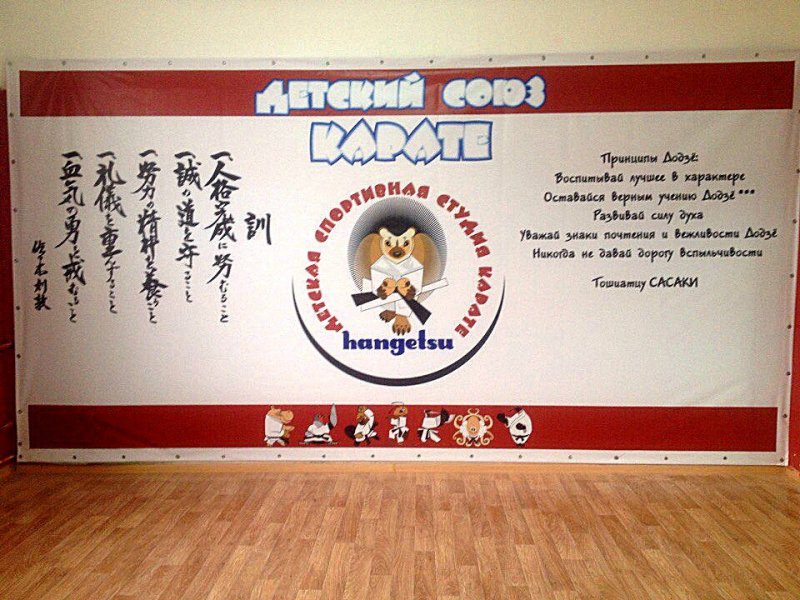 ДЕТСКИЙ СОЮЗ
КАРАТЕ
訓
一、人格完成に努むること
一、誠の道を守ること
一、努力の精神を養ふこと
一、礼儀を重んずること
一、血気の勇を戒むること
佐々木
ДЕТСКАЯ СПОРТИВНАЯ СТУДИЯ КАРАТЕ
hangetsu
Принципы Додзё:
Воспитывай лучшее в характере
Оставайся верным учению Додзё***
Развивай силу духа
Уважай знаки почтения и вежливости Додзё
Никогда не давай дорогу вспыльчивости
Тошиатцу САСАКИ